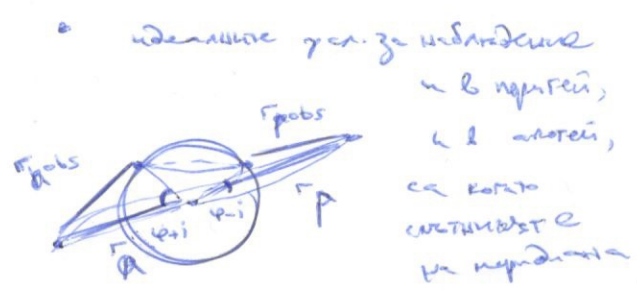 • идеалните усл. за наблюдение
и в перигей,
и в апогей,
са когато
спътникът е
на меридиана
r_p obs
r_a obs
r_p
r_a
φ+i
φ-i